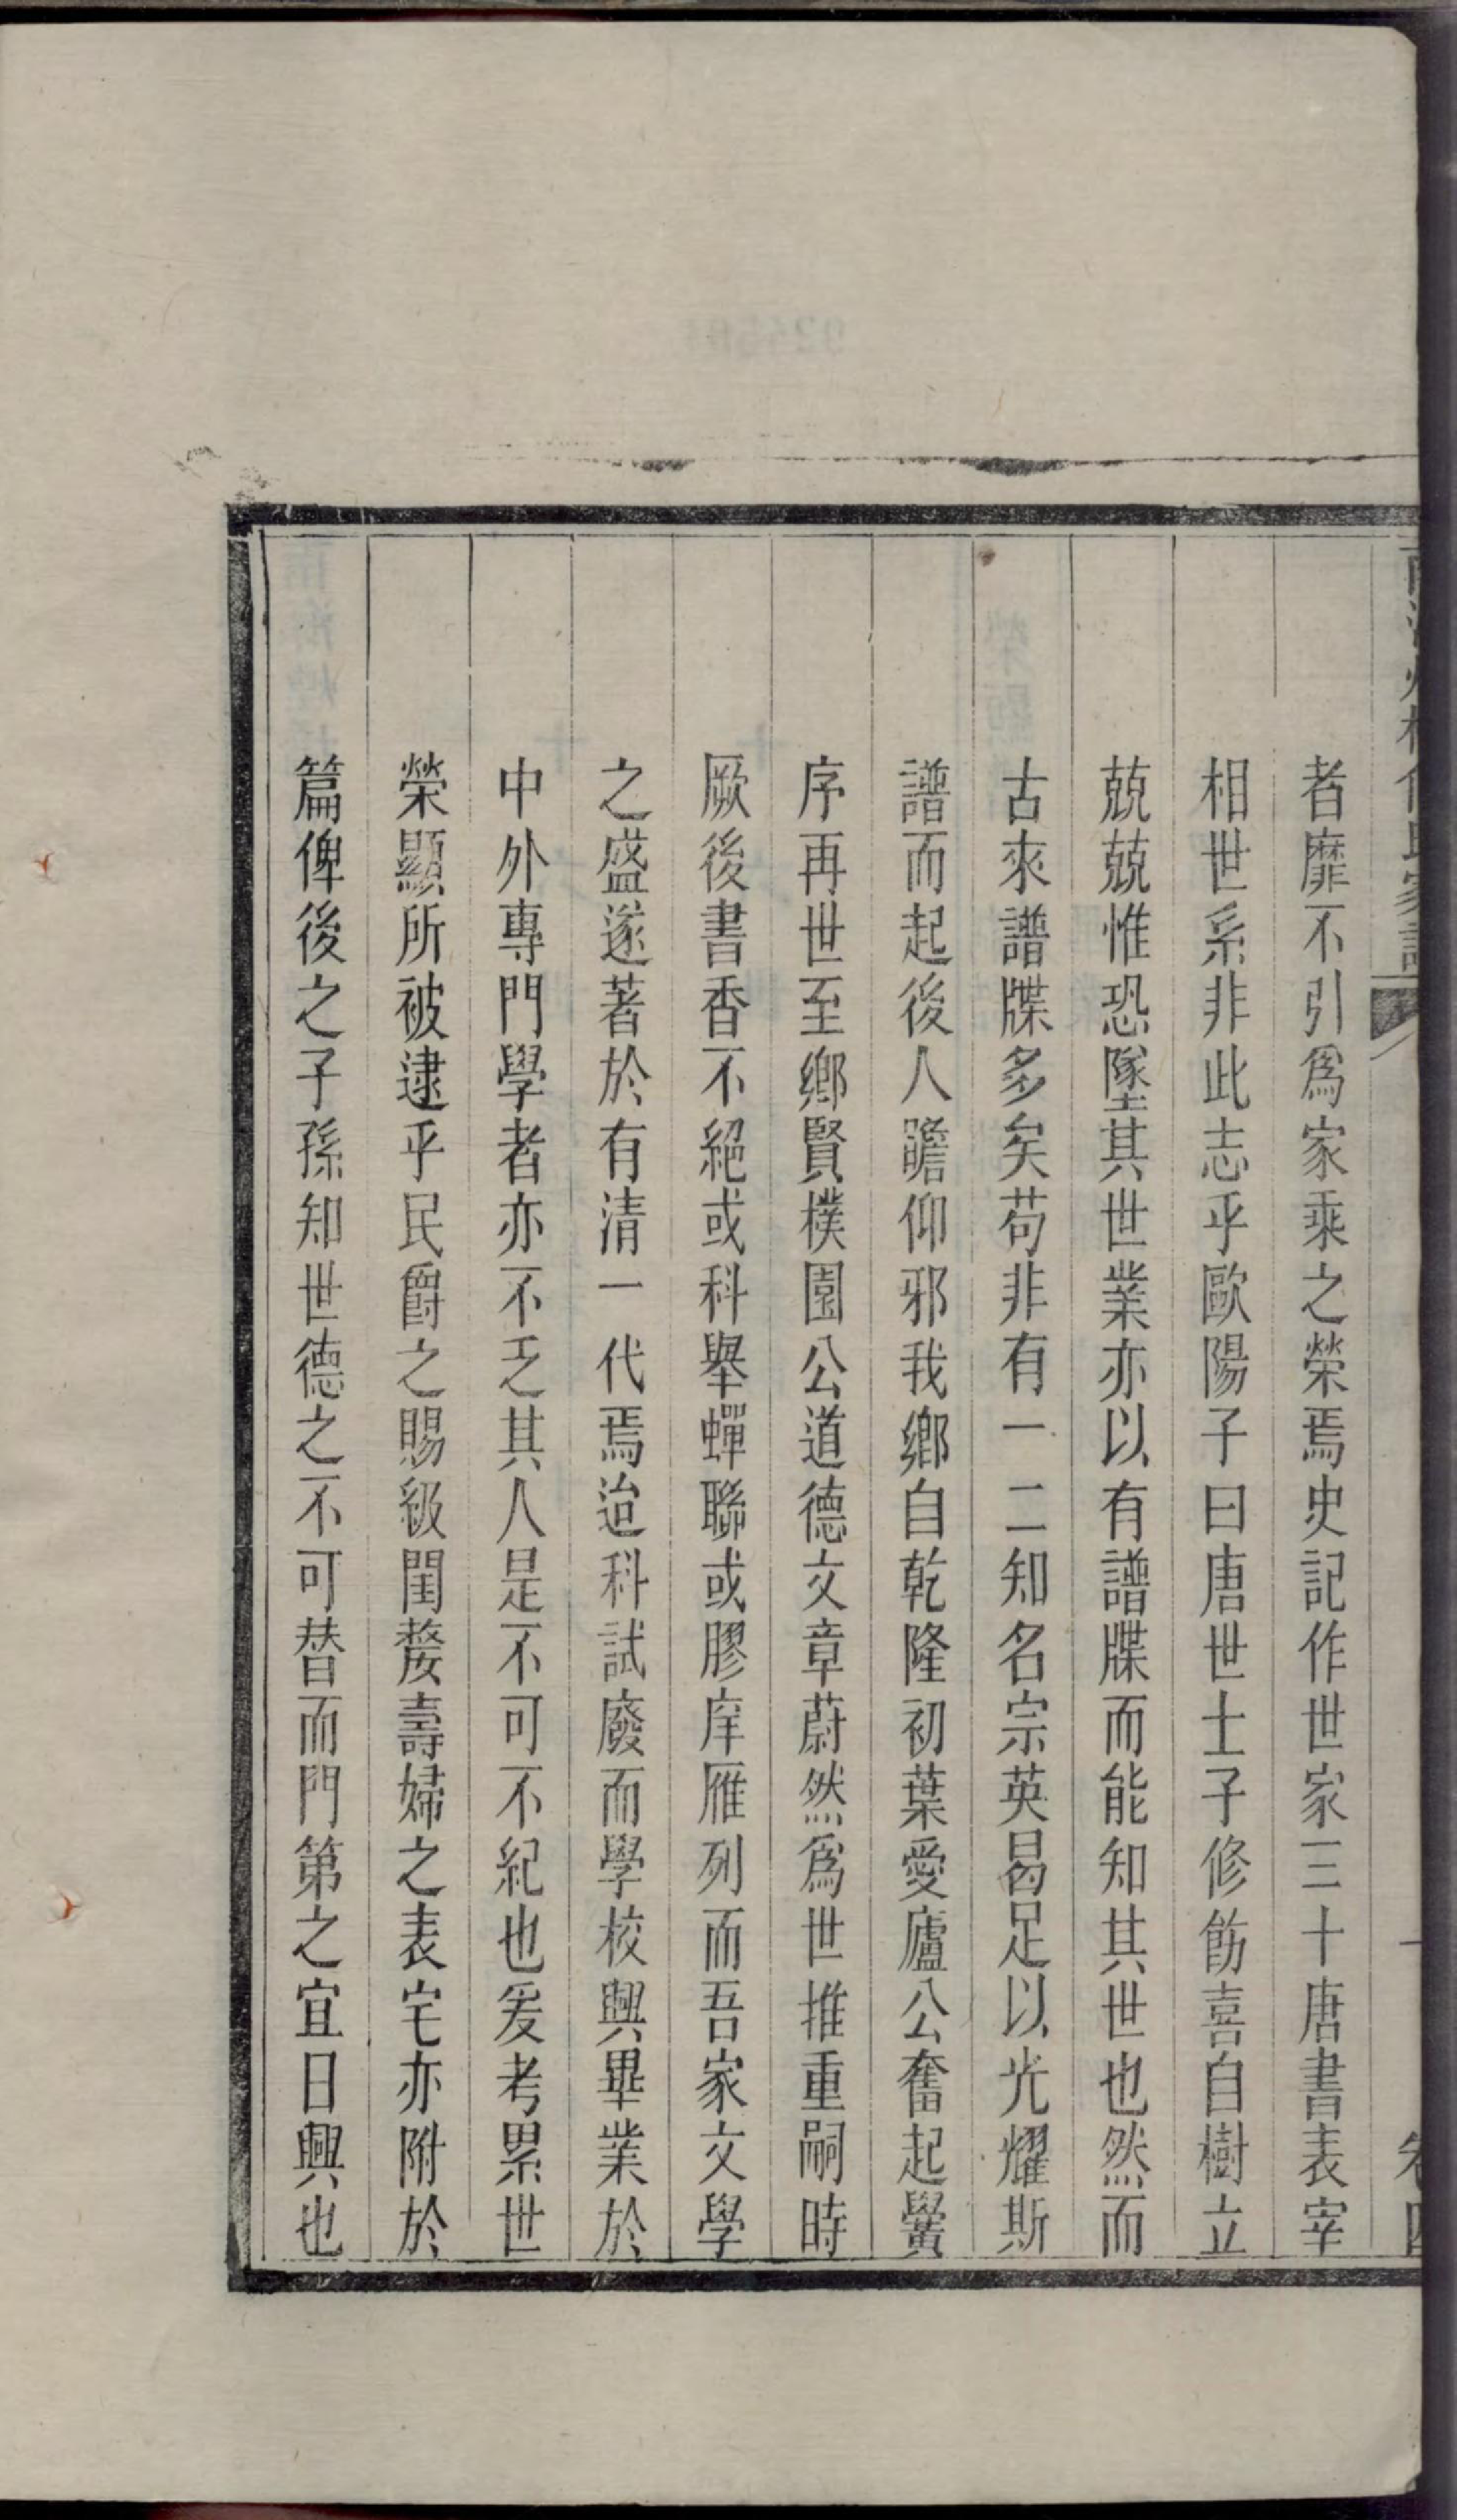 者靡不引爲家乘之榮焉史記作世家三十唐書表宰
相世系非此志乎歐陽子曰唐世士子修飭喜自樹立
兢兢惟恐墜其世業亦以有譜牒而能知其世也然而
古來譜牒多矣苟非有一二知名宗英曷足以光耀斯
譜而起後人瞻仰邪我鄉自乾隆初葉愛廬公奮起黌
序再世至鄉賢樸園公道德文章蔚然爲世推重嗣時
厥後書香不絕或科舉蟬聯或膠庠雁列而吾家文學
之盛遂著於有清一代焉迨科試廢而學校興畢業於
中外專門學者亦不乏其人是不可不紀也爰考累世
榮顯所被逮乎民爵之賜級閨嫠壽婦之表宅亦附於
篇俾後之子孫知世德之不可替而門第之宜日興也